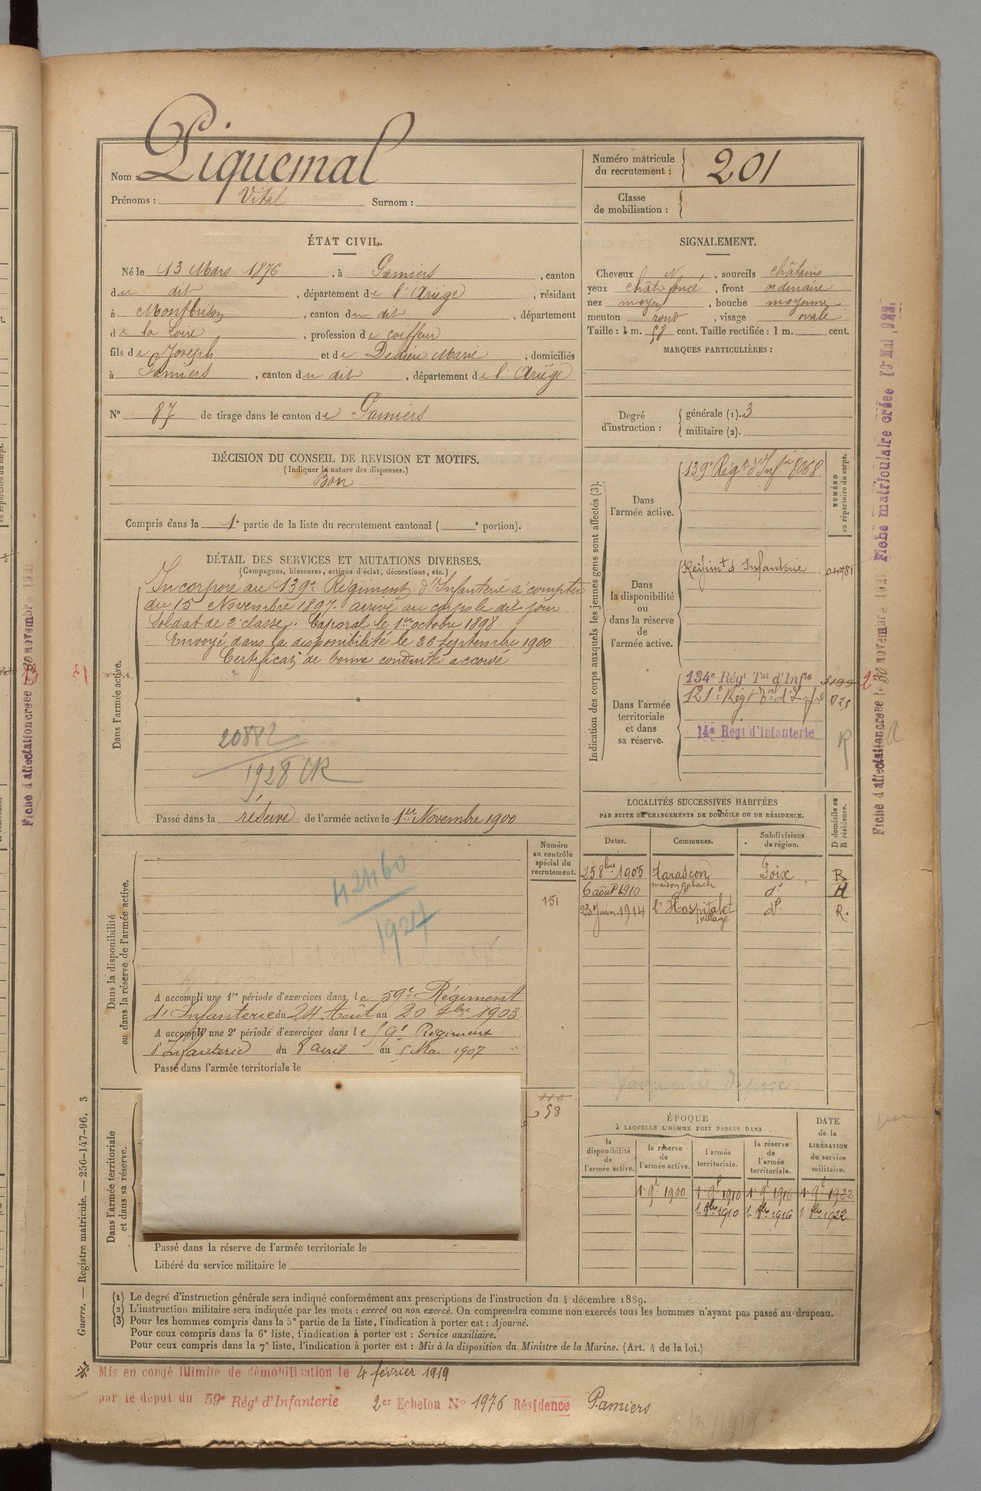 Nom Piquemal
Prénoms : Vital Surnom :
Numéro matricule
du recrutement : 201
Classe
de mobilisation :
ÉTAT CIVIL.
Né le 13 Mars 1876, à Pamiers, canton
du dit, département de l'Ariège, résidant
à Montbrison, canton du dit, département
de la Loire, profession de coiffeur
fils de Joseph et de Dedieu Marie, domiciliés
à Pamiers, canton du dit, département de l'Ariège
N° 87 de tirage dans le canton de Pamiers
SIGNALEMENT.
Cheveux N, sourcils châtains
yeux chât. foncé, front ordinaire
nez moyen, bouche moyenne
menton rond, visage ovale
Taille : 1 m. 58 cent. Taille rectifiée : 1 m. cent.
MARQUES PARTICULIÈRES :
Degré
d'instruction :
générale (1). 3
militaire (2).
DÉCISION DU CONSEIL DE REVISION ET MOTIFS.
(Indiquer la nature des dispenses.)
Bon
Compris dans la 1e partie de la liste du recrutement cantonal ( e portion).
DÉTAIL DES SERVICES ET MUTATIONS DIVERSES.
(Campagnes, blessures, actions d'éclat, décorations, etc.)
Dans l'armée active.
Incorporé au 139e Régiment d'Infanterie à compter
du 15 Novembre 1897 arrivé au corps le dit jour
Soldat de 2e classe. Caporal le 1er octobre 1898
Envoyé dans la disponibilité le Septembre 1900
Certificat de bonne conduite accordé
20882
1928
Passé dans la réserve de l'armée active le 1er Novembre 1900
Indication des corps auxquels les jeunes gens sont affectés (3).
NUMÉRO
au répertoire du corps.
Dans
l'armée active.
139e Régt d'Infie 8068
Dans
la disponibilité
ou
dans la réserve
de
l'armée active.
Régiment d'Infanterie
Dans l'armée
territoriale
et dans
sa réserve.
134e Régt Tal d'Infie
121e Régt Tal d'Infie
14e Régt d'Infanterie
R
LOCALITÉS SUCCESSIVES HABITÉES
PAR SUITE DE CHANGEMENTS DE DOMICILE OU DE RÉSIDENCE.
D domicile ou
R résidence.
Dates. Communes. Subdivisions
de région.
25 8bre 1905 Tarascon Foix R
6 août 1910 do
23 Juin 1914 l'Hospitalet village do R.
Dans la disponibilité
ou dans la réserve de l'armée active.
Numéro
au contrôle
spécial du
recrutement.
151
42460
1927
A accompli une 1re période d'exercices dans le 59e Régiment
d'Infanterie du 24 Août au 20 7bre 1903
A accompli une 2e période d'exercices dans le 59e Régiment
d'Infanterie du 8 avril au 5 Mai 1907
Passé dans l'armée territoriale le
Dans l'armée territoriale
et dans sa réserve.
58
Passé dans la réserve de l'armée territoriale le
Libéré du service militaire le
ÉPOQUE
À LAQUELLE L'HOMME DOIT PASSER DANS
la
disponibilité
de
l'armée active.
la réserve
de
l'armée active.
l'armée
territoriale.
la réserve
de
l'armée
territoriale.
DATE
de la
LIBÉRATION
du service
militaire.
1er 9bre 1900 1er 9bre 1910 1er 9bre 1916 1er 9bre 1923
1 8bre 1910 1 8bre 1916 1 8bre 1922
(1) Le degré d'instruction générale sera indiqué conformément aux prescriptions de l'instruction du 4 décembre 1889.
(2) L'instruction militaire sera indiquée par les mots : exercé ou non exercé. On comprendra comme non exercés tous les hommes n'ayant pas passé au drapeau.
(3) Pour les hommes compris dans la 5e partie de la liste, l'indication à porter est : Ajourné.
Pour ceux compris dans la 6e liste, l'indication à porter est : Service auxiliaire.
Pour ceux compris dans la 7e liste, l'indication à porter est : Mis à la disposition du Ministre de la Marine. (Art. 4 de la loi.)
Mis en congé illimité de démobilisation le 4 février 1919
par le dépôt du 59e Régt d'Infanterie 2er Echelon N° 1976 Résidence Pamiers
Guerre. — Registre matricule. — 256-147-96. 3
Fiche d'affectation créée le 30 novembre 1921 Fiche matriculaire créée 10 Mai 1922
Fiche d'affectation créée 30 novembre 1921